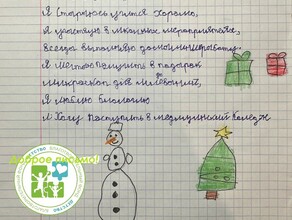 Я стараюсь учится хорошо,
Я участвую в школьных мероприятиях,
Всегда выполняю домашнюю работу.
Я мечтаю получить в подарок
микроскоп для
Я люблю биологию
И хочу поступить в медицинский колледж
Доброе письмо!
ДЕТСТВО